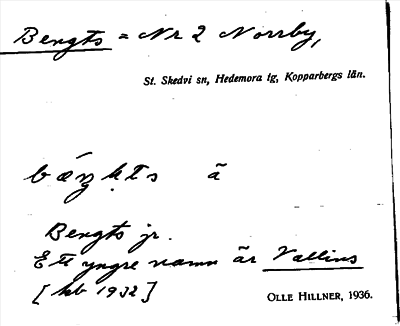 Bengts = Nr 2 Norrby,
St. Skedvi sn, Hedemora tg, Kopparbergs län.
bǽŋkts ã
Bengts jr.
Ett yngre namn är Vallins
[kb 1932]
OLLE HILLNER, 1936.